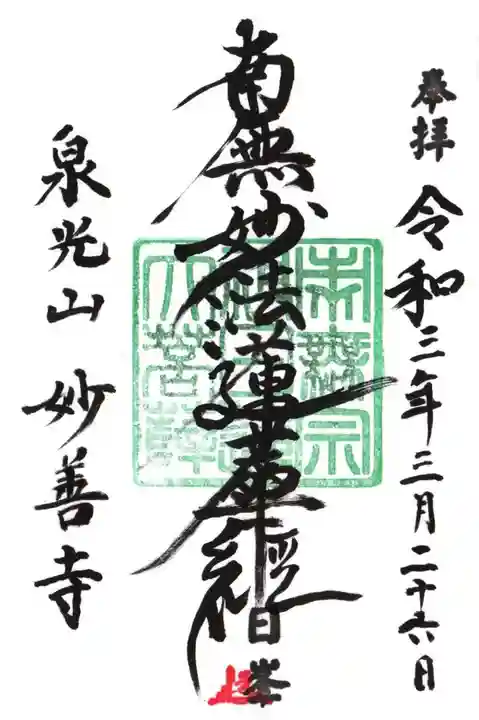 奉拝
令和三年三月二十六日
南無妙法蓮華經
日峯
泉光山 妙善寺